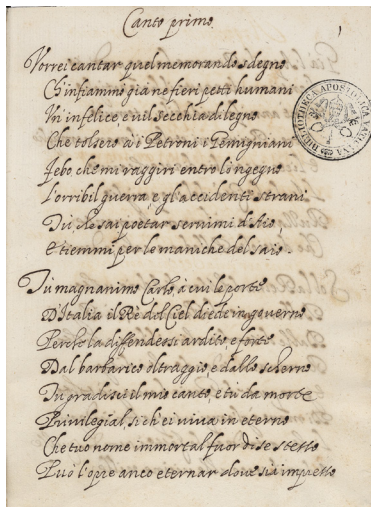 Canto primo
1
Vorrei cantar quel memorando sdegno
Ch'infiammò già ne fieri petti humani
Un infelice e vil secchia di legno
Che tolsero à i Petroni i Gemigniani
Febo che mi raggiri entro l'ingegno
L'orribil guerra e gl'accidenti strani
Tu che sai poetar servimi d'Aio,
E tiemmi per le maniche del saio.
Tu magnanimo Carlo, à cui le porte
D'Italia il Rè del Ciel diede in governo
Perche la diffendessi ardito, e forte
Dal barbarico oltraggio, e dallo scherno
Tu gradisci il mio canto, e tu da morte
Privilegial sì ch'ei viva in eterno
Che tuo nome immortal fuor di se stesso
Può l'opre anco eternar dove sia impresso
BIBLIOTHECA APOSTOLICA VATICANA